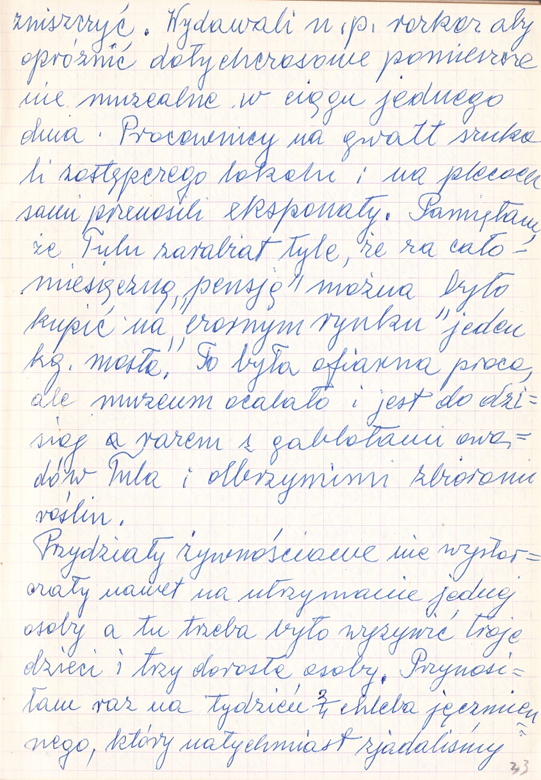 zniszczyć. Wydawali n.p. rozkaz aby
opróżnić dotychczasowe pomieszcze
nie muzealne w ciągu jednego
dnia. Pracownicy na gwałt szuka
li zastępczego lokalu i na plecach
sami przenosili eksponaty. Pamiętam,
że Tulu zarabiał tyle, że za cało-
miesięczną „pensję" można było
kupić na „czarnym rynku" jeden
kg. masła." To była ofiarna praca,
ale muzeum ocalało i jest do dzi=
siaj a razem z gablotami owa=
dów Tula i olbrzymimi zbiorami
roślin.
Przydziały żywnościowe nie wystar=
czały nawet na utrzymanie jednej
osoby a tu trzeba było wyżywić troje
dzieci i trzy dorosłe osoby. Przynosi=
łam raz na tydzień 3/4 chleba jęczmien=
nego, który natychmiast zjadaliśmy
33